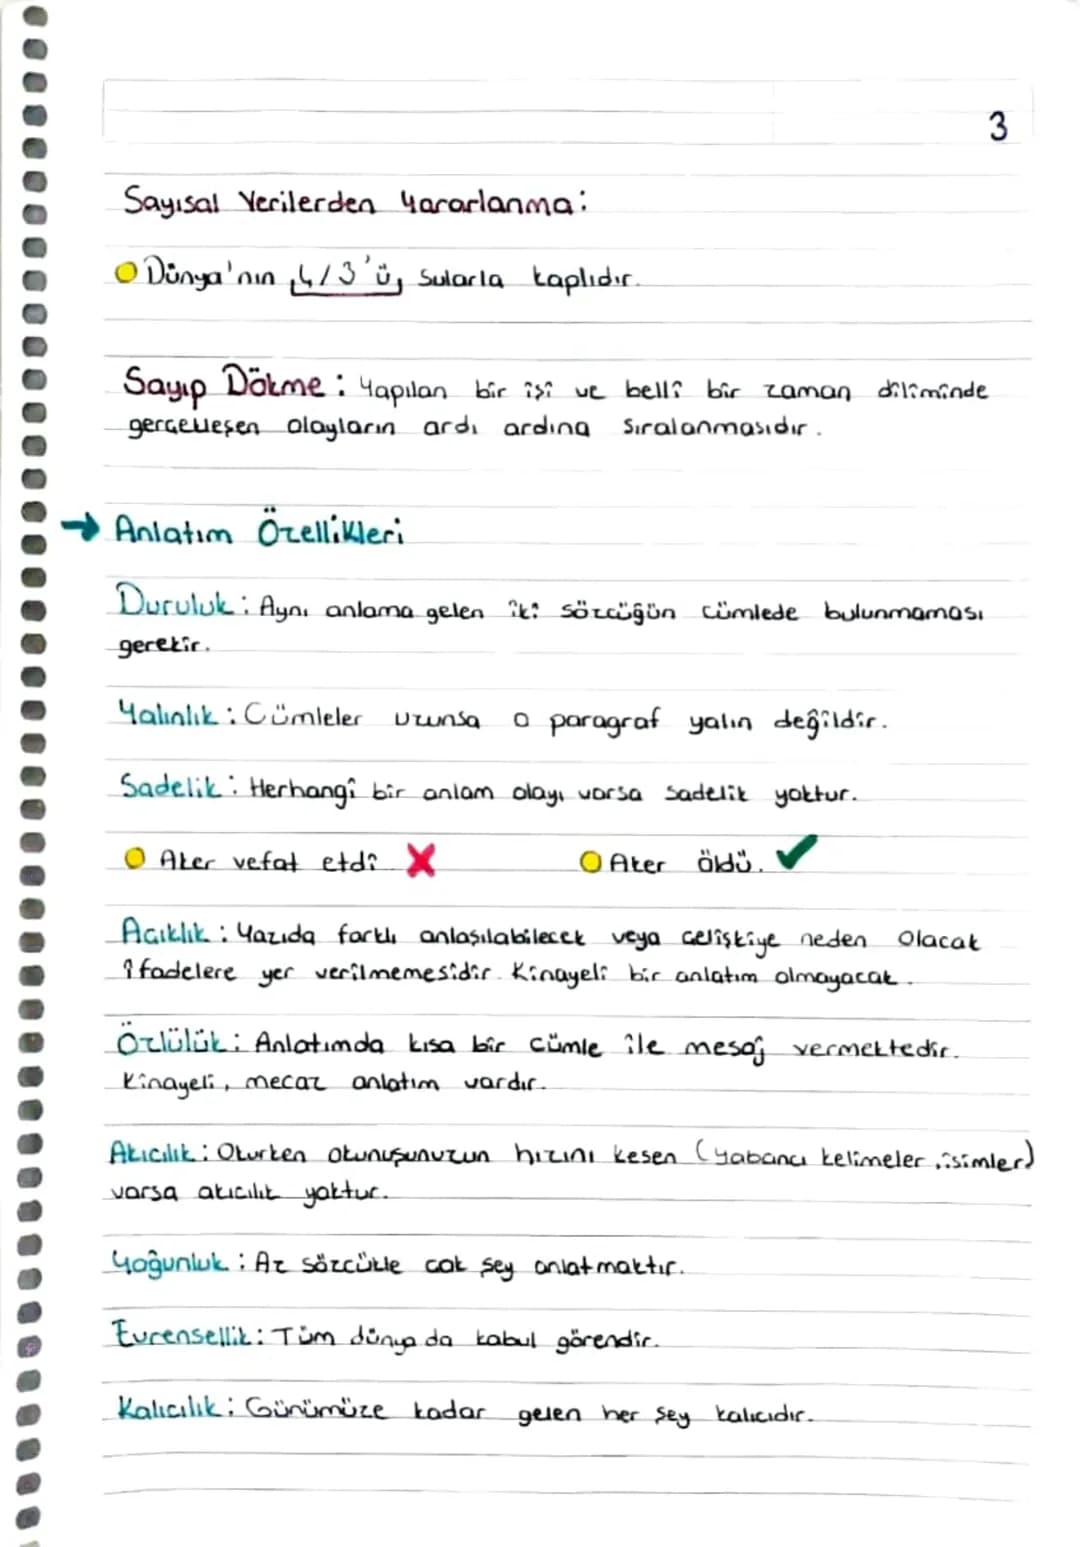 3
Sayısal Verilerden Yararlanma:
Dünya'nın 4/3'ü, sularla kaplıdır.
Sayıp Dökme: Yapılan bir işi ve belli bir zaman diliminde
gerçekleşen olayların ardı ardına sıralanmasıdır.
→ Anlatım Özellikleri
Duruluk: Aynı anlama gelen iki sözcüğün cümlede bulunmaması
gerekir.
Yalınlık: Cümleler uzunsa o paragraf yalın değildir.
Sadelik: Herhangi bir anlam olayı varsa sadelik yoktur.
Aker vefat etdi ✗ Aker öldü. ✓
Açıklık: Yazıda farklı anlaşılabilecek veya çelişkiye neden olacak
ifadelere yer verilmemesidir. Kinayeli bir anlatım olmayacak.
Özlülük: Anlatımda kısa bir cümle ile mesaj vermektedir.
Kinayeli, mecaz anlatım vardır.
Akıcılık: Okurken okunuşunuzun hızını kesen (yabancı kelimeler, isimler)
varsa akıcılık yoktur.
Yoğunluk: Az sözcükle çok şey anlatmaktır.
Evrensellik: Tüm dünya da kabul görendir.
Kalıcılık: Günümüze kadar gelen her şey kalıcıdır.